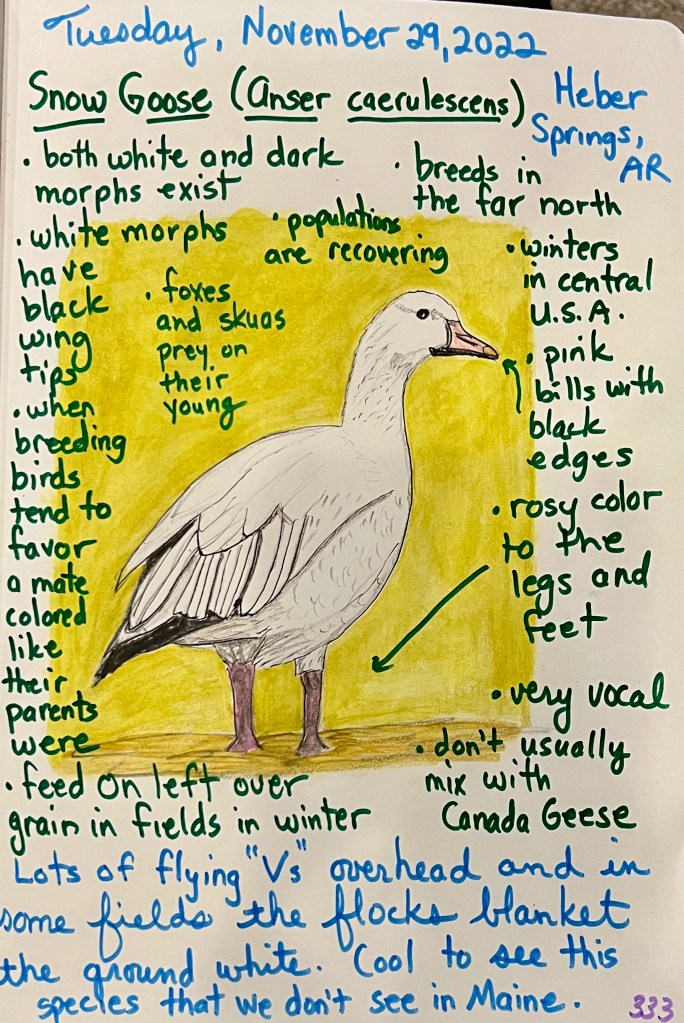 Tuesday, November 29, 2022
Snow Goose (Anser caerulescens)
Heber
Springs,
AR
• both white and dark
morphs exist
• breeds in
the far north
• white morphs
have
black
wing
tips
• populations
are recovering
• foxes
and skuas
prey on
their
young
• winters
in central
U.S.A.
• pink
bills with
black
edges
• when
breeding
birds
tend to
favor
a mate
colored
like
their
parents
were
• rosy color
to the
legs and
feet
• very vocal
• don't usually
mix with
Canada Geese
• feed on left over
grain in fields in winter
Lots of flying "Vs" overhead and in
some fields the flocks blanket
the ground white. Cool to see this
species that we don't see in Maine.
333